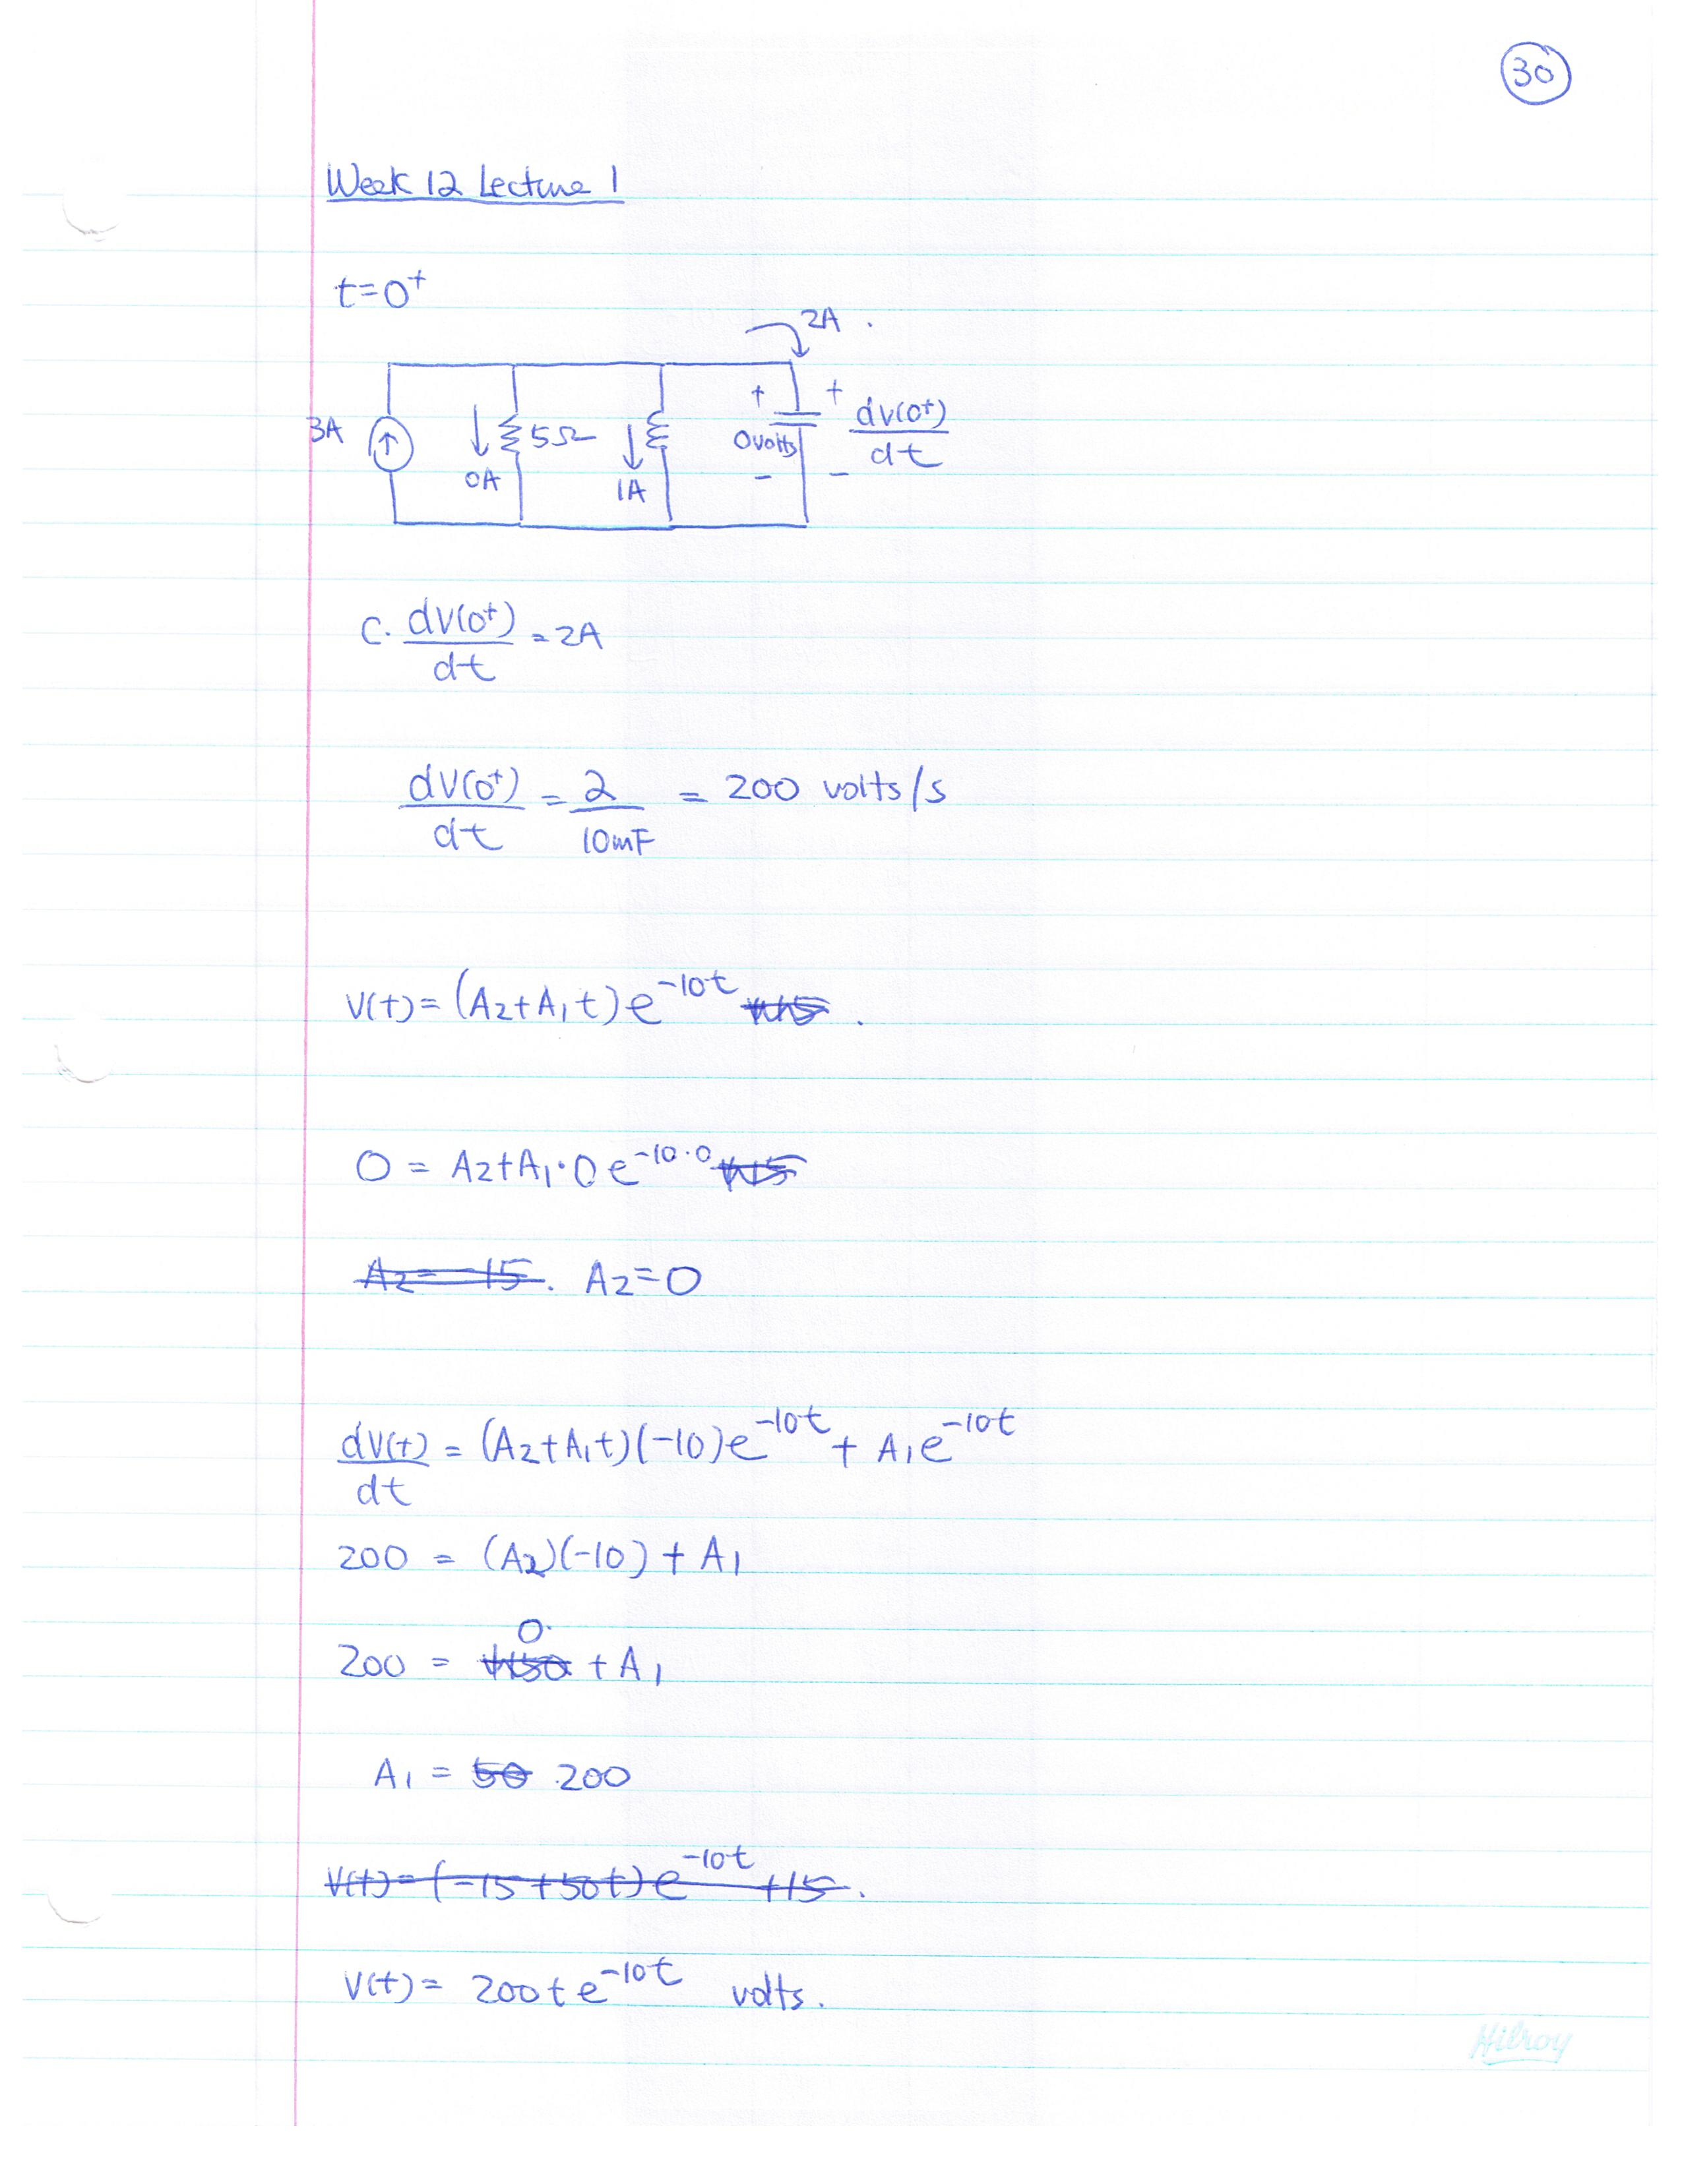 30
Week 12 Lecture 1
t=0⁺
2A .
3A 0A 5Ω 1A + 0volts - + dv(0⁺)/dt -
C. dv(0⁺)/dt = 2A
dv(0⁺)/dt = 2/10mF = 200 volts/s
v(t)= (A₂+A₁t)e^-10t +15 .
0 = A₂+A₁·0e^-10·0 +15
A₂=-15. A₂=0
dv(t)/dt = (A₂+A₁t)(-10)e^-10t + A₁e^-10t
200 = (A₂)(-10)+A₁
0.
200 = +150 +A₁
A₁ = 50 200
v(t)=(-15+50t)e^-10t +15.
v(t)= 200te^-10t volts.
Hilroy